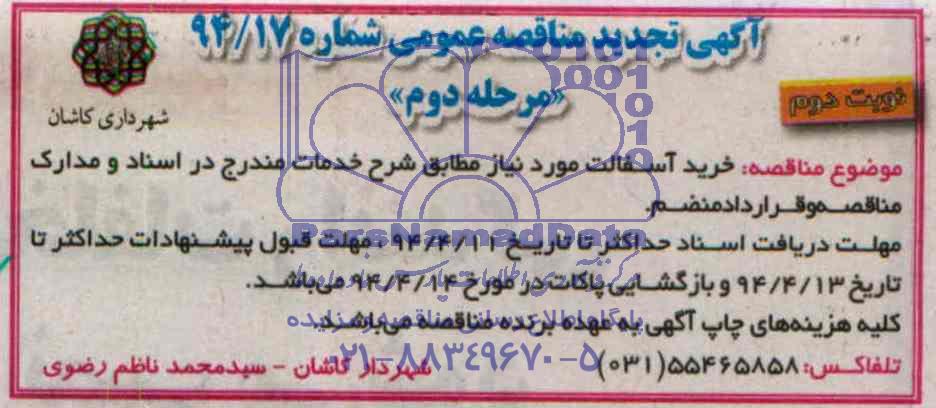 آگهی تجدید مناقصه عمومی شماره ۹۴/۱۷
«مرحله دوم»
نوبت دوم
شهرداری کاشان
موضوع مناقصه: خرید آسفالت مورد نیاز مطابق شرح خدمات مندرج در اسناد و مدارک
مناقصه و قرارداد منضم.
مهلت دریافت اسناد حداکثر تا تاریخ ۹۴/۴/۱۱، مهلت قبول پیشنهادات حداکثر تا
تاریخ ۹۴/۴/۱۳ و بازگشایی پاکات در مورخ ۹۴/۴/۱۴ می‌باشد.
کلیه هزینه‌های چاپ آگهی به عهده برنده مناقصه می‌باشد.
تلفاکس: ۵۵۴۶۵۸۵۸(۰۳۱)
شهردار کاشان - سیدمحمد ناظم رضوی
ParsNamadData
پایگاه اطلاع رسانی مناقصه و مزایده
۰۲۱-۸۸۳۴۹۶۷۰-۵